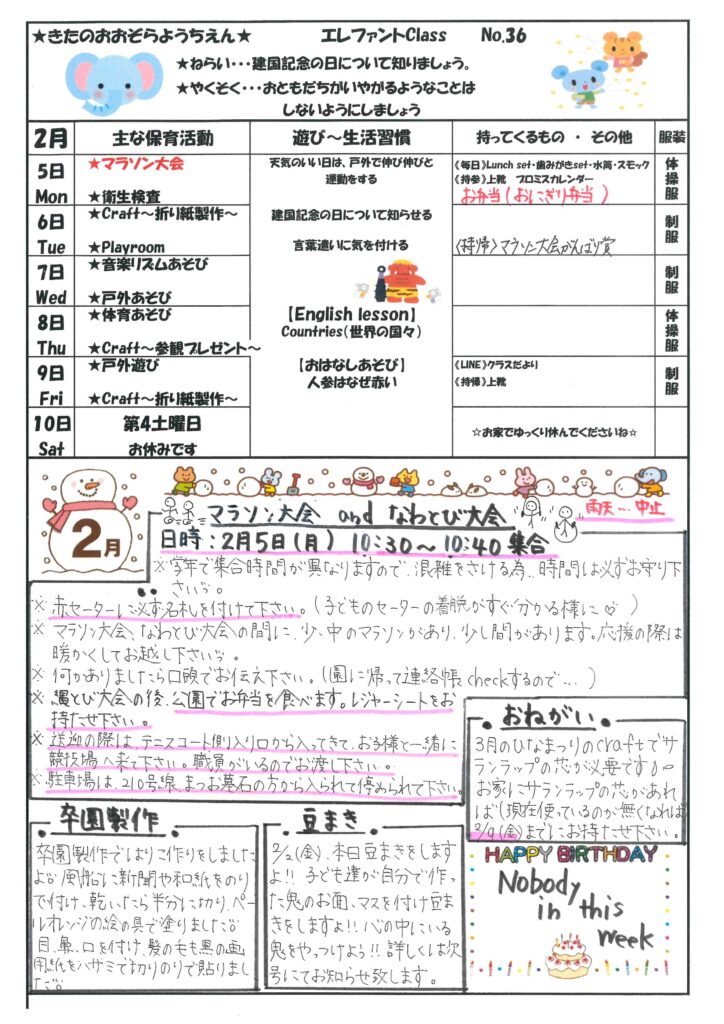 ★きたのおおぞらようちえん★ エレファントClass No.36
★ねらい・・・建国記念の日について知りましょう。
★やくそく・・・おともだちがいやがるようなことは
しないようにしましょう
2月 主な保育活動 遊び～生活習慣 持ってくるもの ・ その他 服装
5日 Mon
★マラソン大会
★衛生検査
天気のいい日は、戸外で伸び伸びと
運動をする
《毎日》Lunch set・歯みがきset・水筒・スモック
《持参》上靴 プロミスカレンダー
お弁当(おにぎり弁当)
体操服
6日 Tue
★Craft～折り紙製作～
★Playroom
建国記念の日について知らせる
言葉遣いに気を付ける
〈持帰〉マラソン大会がんばり賞
制服
7日 Wed
★音楽リズムあそび
★戸外あそび
制服
8日 Thu
★体育あそび
★Craft～参観プレゼント～
【English lesson】
Countries(世界の国々)
体操服
9日 Fri
★戸外遊び
★Craft～折り紙製作～
【おはなしあそび】
人参はなぜ赤い
《LINE》クラスだより
《持帰》上靴
制服
10日 Sat
第4土曜日
お休みです
☆お家でゆっくり休んでくださいね☆
2月
マラソン大会 and なわとび大会
雨天…中止
日時：2月5日(月) 10:30～10:40 集合
※学年で集合時間が異なりますので、混雑をさける為、時間は必ずお守り下
さい。
※ 赤セーターに必ず名札を付けて下さい。(子どものセーターの着脱がすぐ分かる様に♡)
※ マラソン大会、なわとび大会の間に、少、中のマラソンがあり、少し間があります。応援の際は
暖かくしてお越し下さい。
※ 何かありましたら口頭でお伝え下さい。(園に帰って連絡帳checkするので…)
※ 縄とび大会の後、公園でお弁当を食べます。レジャーシートをお
持たせ下さい。
※ 送迎の際は、テニスコート側入り口から入ってきて、お子様と一緒に
競技場へ来て下さい。職員がいるのでお渡し下さい。
※ 駐車場は、210号線、まつお墓石の方から入られて停められて下さい。
おねがい
3月のひなまつりのcraftでサ
ランラップの芯が必要です
お家にサランラップの芯があれ
ば(現在使っているのが無くなれば)
2/9(金)までにお持たせ下さい。
卒園製作
卒園製作ではりこ作りをしました
よ。風船に新聞や和紙をのり
で付け、乾いたら半分に切り、ペー
ルオレンジの絵の具で塗りました。
目、鼻、口を付け、髪の毛も黒の画
用紙をハサミで切りのりで貼りまし
た。
豆まき
2/2(金)、本日豆まきをします
よ!! 子ども達が自分で作っ
た鬼のお面、マスを付け豆ま
きをしますよ!! 心の中にいる
鬼をやっつけよう!! 詳しくは次
号にてお知らせ致します。
HAPPY BIRTHDAY
Nobody
in this
week